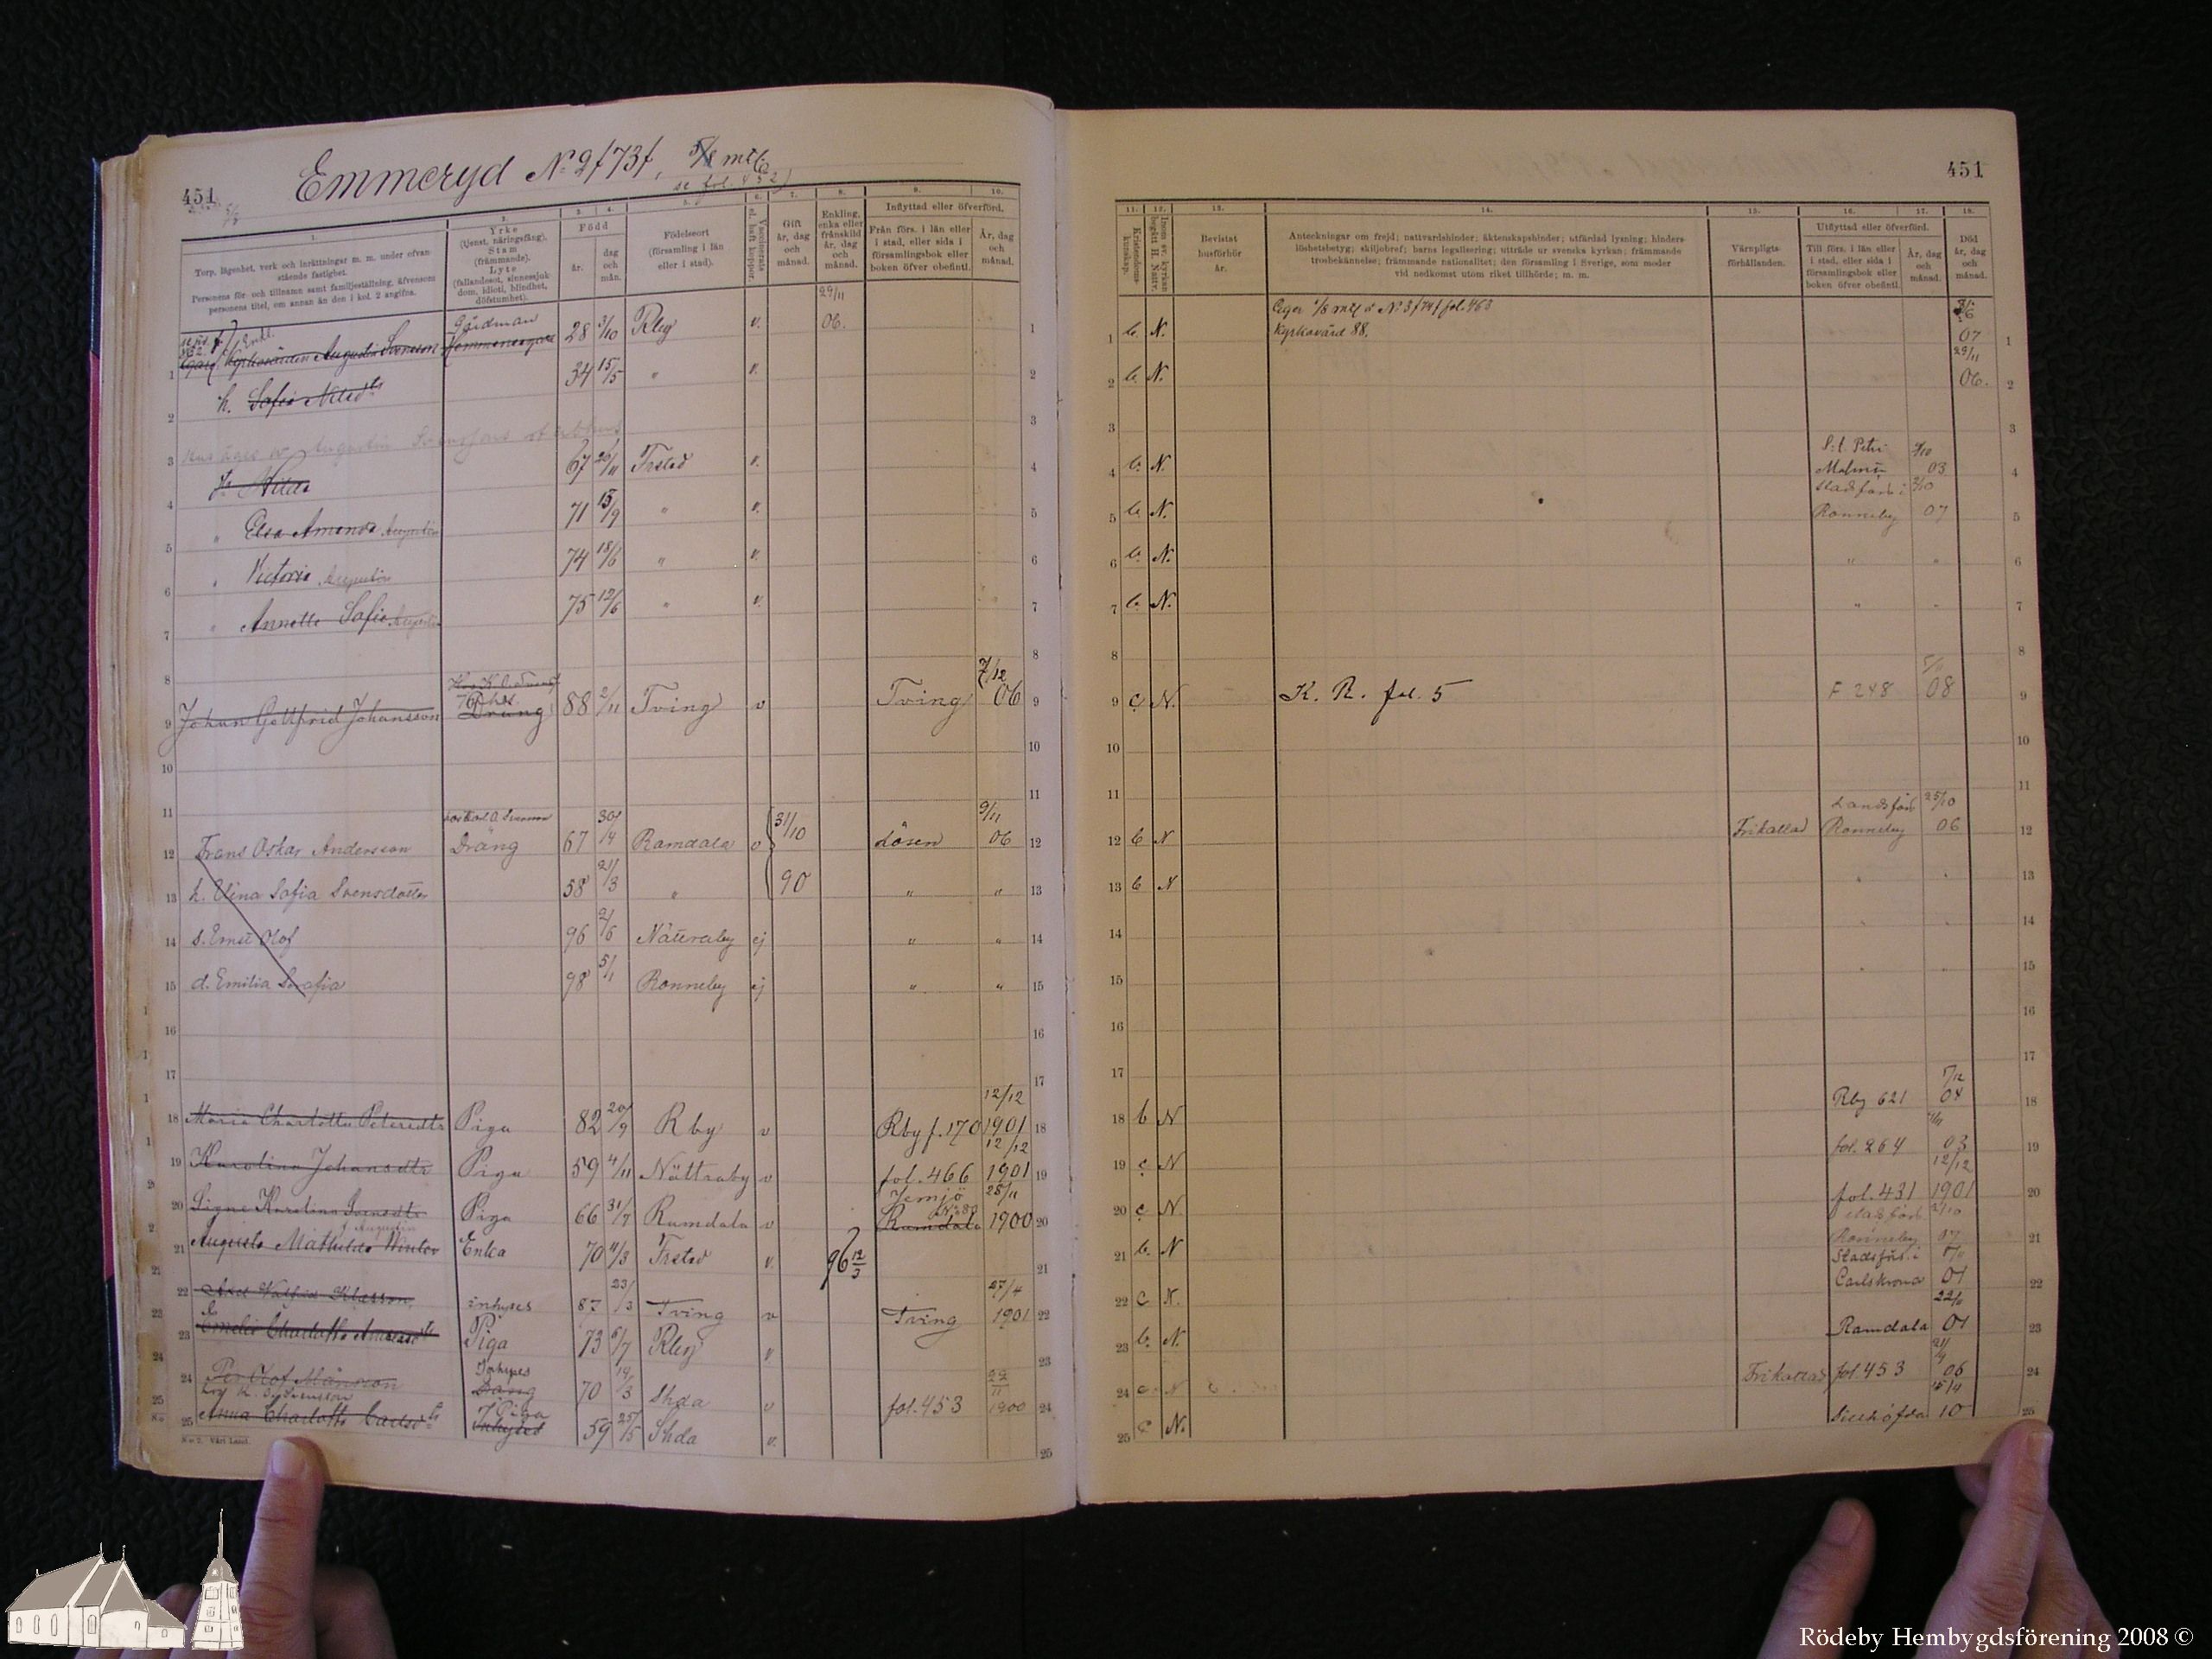 451
Emmeryd No 2 f 73 f, 5/8 mtl
se fol. 452)
1.
Torp, lägenhet, verk och inrättningar m. m. under ofvanstående fastighet.
Personens för- och tillnamn samt familjeställning, äfvensom personens titel, om annan än den i kol. 2 angifna.
2.
Yrke
(tjenst, näringsfång),
Stam
(främmande),
Lyte
(fallandesot, sinnessjukdom, idioti, blindhet, döfstumhet).
3. 4.
Född
år. dag och mån.
5.
Födelseort
(församling i län eller i stad).
6.
Vaccinerats el. haft koppor.
7.
Gift
år, dag och månad.
8.
Enkling, enka eller frånskild
år, dag och månad.
9. 10.
Inflyttad eller öfverförd.
Från förs. i län eller i stad, eller sida i församlingsbok eller boken öfver obefintl.
År, dag och månad.
1 Enkl. Kyrkovärden Augustin Svensson Gårdman Hemmansegare 28 3/10 Rby v. 29/11 06. 1
2 h. Sofia Nilsdtr 34 15/5 " v. 2
3 Augustin Svenssons 3
4 Hilda 67 20/11 Frstad v. 4
5 " Elsa Amanda Augustin 71 15/9 " v. 5
6 " Victoria Augustin 74 18/6 " v. 6
7 " Annette Sofia Augustin 75 12/6 " v. 7
8 8
9 Johan Gottfrid Johansson Dräng 88 2/11 Tving v Tving 7/12 06 9
10 10
11 11
12 Frans Oskar Andersson hos Karl A. Svensson Dräng 67 30/4 Ramdala v 31/10 Lösen 9/11 06 12
13 h. Elina Sofia Svensdotter 58 21/3 " 90 " " 13
14 s. Ernst Olof 96 2/6 Nättraby ej " " 14
15 d. Emilia Serafia 98 5/1 Ronneby ej " " 15
16 16
17 17
18 Maria Charlotta Petersdtr Piga 82 20/9 Rby v Rby f. 170 12/12 1901 18
19 Karolina Johansdtr Piga 59 4/11 Nättraby v fol. 466 12/12 1901 19
20 Signe Karolina Svensdtr Piga 66 31/7 Ramdala v Jemjö Ramdala 28/11 1900 20
21 Augusta Mathilda Winter f. Augustin Enka 70 11/3 Frstad v. 96 12/3 21
22 Axel Valfrid Klasson inhyses 87 23/3 Tving v Tving 27/4 1901 22
23 Emelie Charlotta Piga 73 6/7 Rby v 23
24 Per Olof Månsson Inhyses Dräng 70 19/3 Shda v fol. 453 22/11 1900 24
hos K. O. Svensson
25 Anna Charlotta Carlsdtr Piga Inhyses 59 25/5 Shda v. 25
451
11. 12. 13. 14. 15. 16. 17. 18.
Kristendomskunskap.
Inom sv. kyrkan begått H. Nattv.
Bevistat husförhör år.
Anteckningar om frejd; nattvardshinder; äktenskapshinder; utfärdad lysning; hinderslöshetsbetyg; skiljobref; barns legalisering; utträde ur svenska kyrkan; främmande trosbekännelse; främmande nationalitet; den församling i Sverige, som moder vid nedkomst utom riket tillhörde; m. m.
Värnpligtsförhållanden.
Utflyttad eller öfverförd.
Till förs. i län eller i stad, eller sida i församlingsbok eller boken öfver obefintl.
År, dag och månad.
Död
år, dag och månad.
Eger 1/8 mtl å No 3 f 74 f fol. 463
1 b. N. Kyrkovärd 88. 07 1
2 b. N. 29/11 06. 2
3 3
4 b. N. S:t Petri Malmö 03 4
5 b. N. Stadsförs. i Ronneby 07 5
6 b. N. " " 6
7 b. N. " " 7
8 8
9 c N. K. R. fol. 5 F 248 08 9
10 10
11 11
12 b N Frikallad Landsförs. Ronneby 25/10 06 12
13 b N " " 13
14 " " 14
15 " " 15
16 16
17 17
18 b N Rby 621 04 18
19 c N fol. 264 03 19
20 c N. fol. 431 12/12 1901 20
21 b. N Stadsförs. Ronneby 07 21
22 c N. Stadsförs. i Carlskrona 01 22
23 b. N. Ramdala 01 23
24 c N Frikallad fol. 453 06 24
25 c N. Sillhöfda 10 25
Rödeby Hembygdsförening 2008 ©